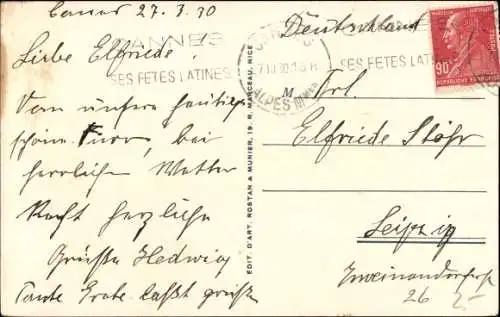 Cannes 27.3.30
Liebe Elfriede!
Von unserer heutigen
schönen Tour, bei
herrlichem Wetter
Recht herzliche
Grüsse Hedwig
Tante Grete lässt grüssen
CANNES
SES FETES LATINES
ALPES MMES
SES FETES LATINES
90
REPUBLIQUE FRANÇAISE
EDIT. D'ART. ROSTAN & MUNIER, 19, R. MARCEAU, NICE
Deutschland
M
Frl.
Elfriede Stöhr
Leipzig
26
2,-